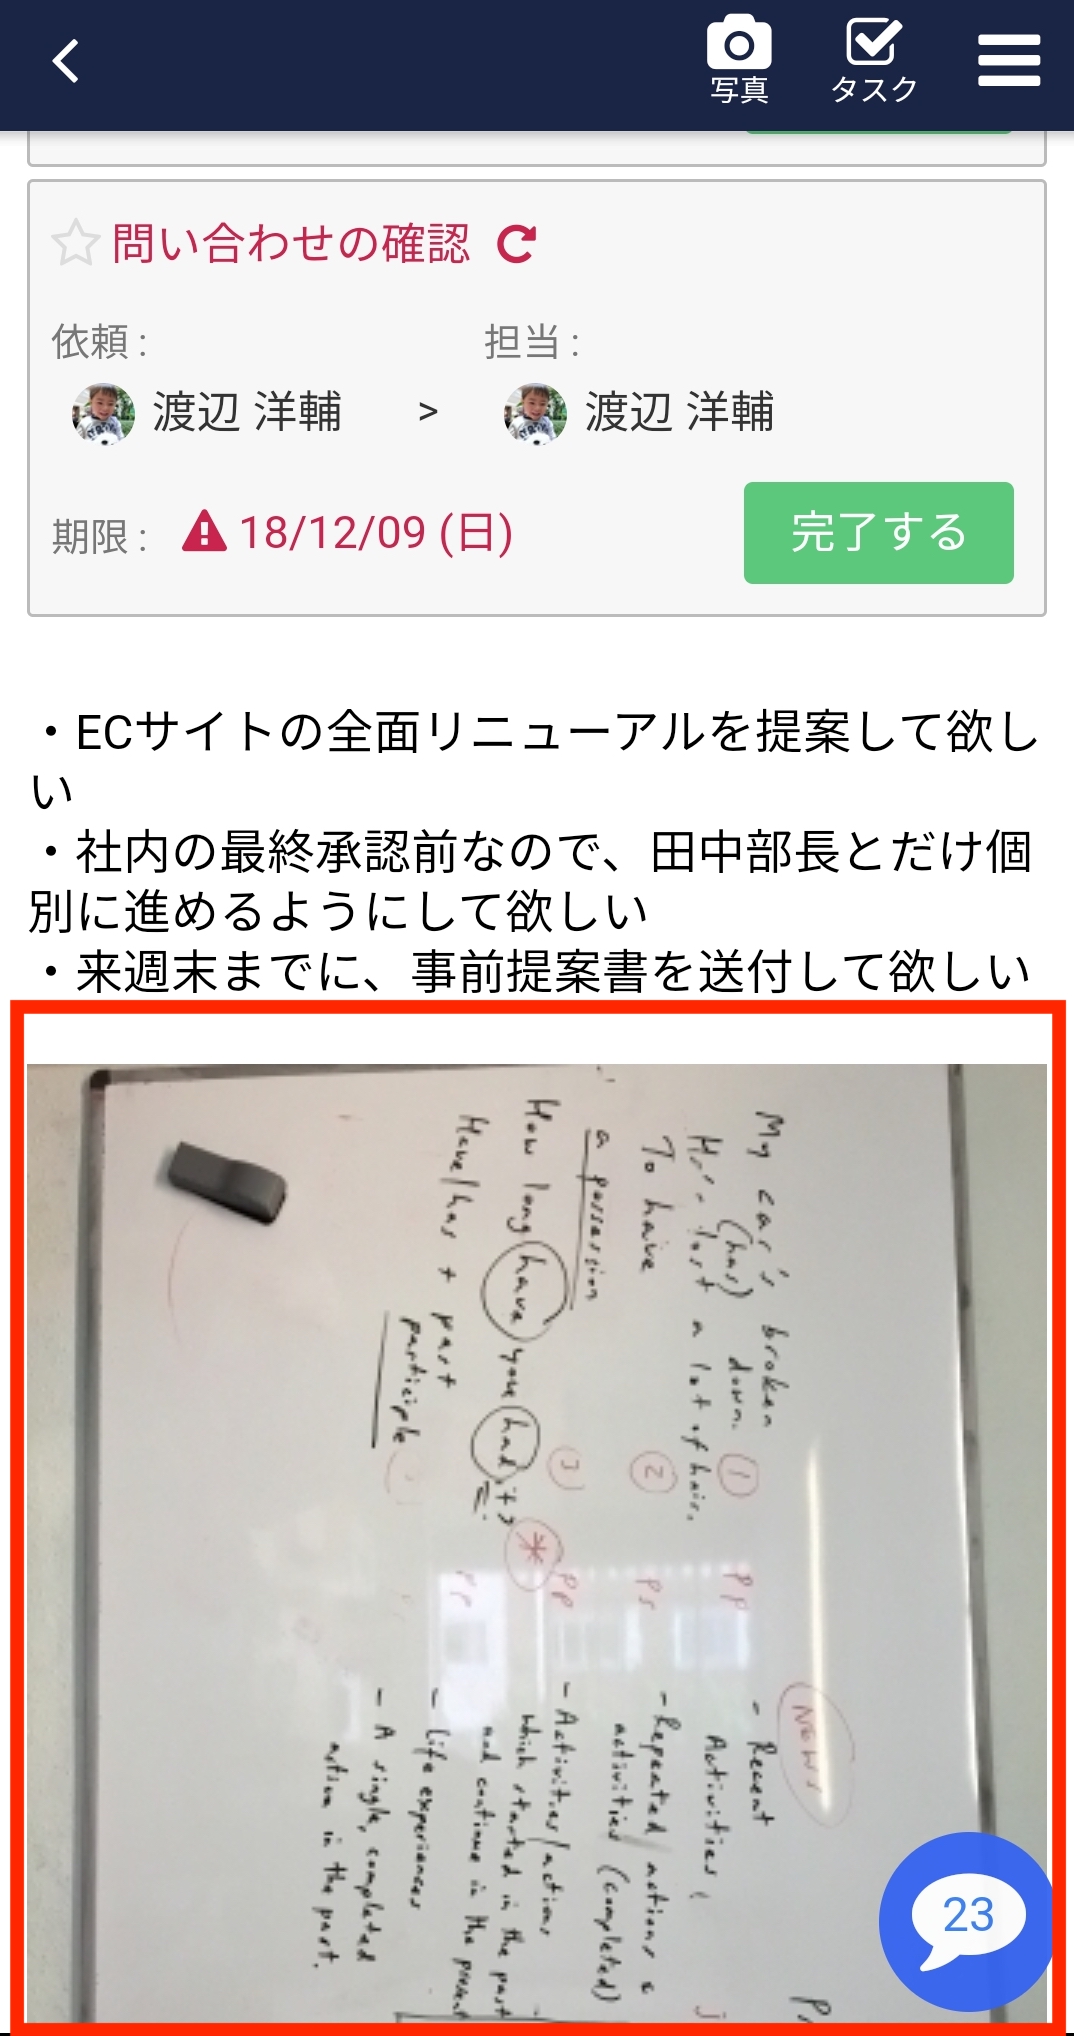 写真
タスク
問い合わせの確認
依頼 :
担当 :
渡辺 洋輔 > 渡辺 洋輔
期限 : 18/12/09 (日)
完了する
・ECサイトの全面リニューアルを提案して欲し
い
・社内の最終承認前なので、田中部長とだけ個
別に進めるようにして欲しい
・来週末までに、事前提案書を送付して欲しい
My car's broken
(has) down. 1
lost a lot of hair.
To have 2
a possession
How long have you had it?
Have/has + past
participle
3
PP
PS
PP
*
NEWS
- Recent
Activities
- Repeated actions
activities (completed)
- Activities/actions
which started in the past
and continue in the present
- Life experiences
- A single, completed
action in the past.
23